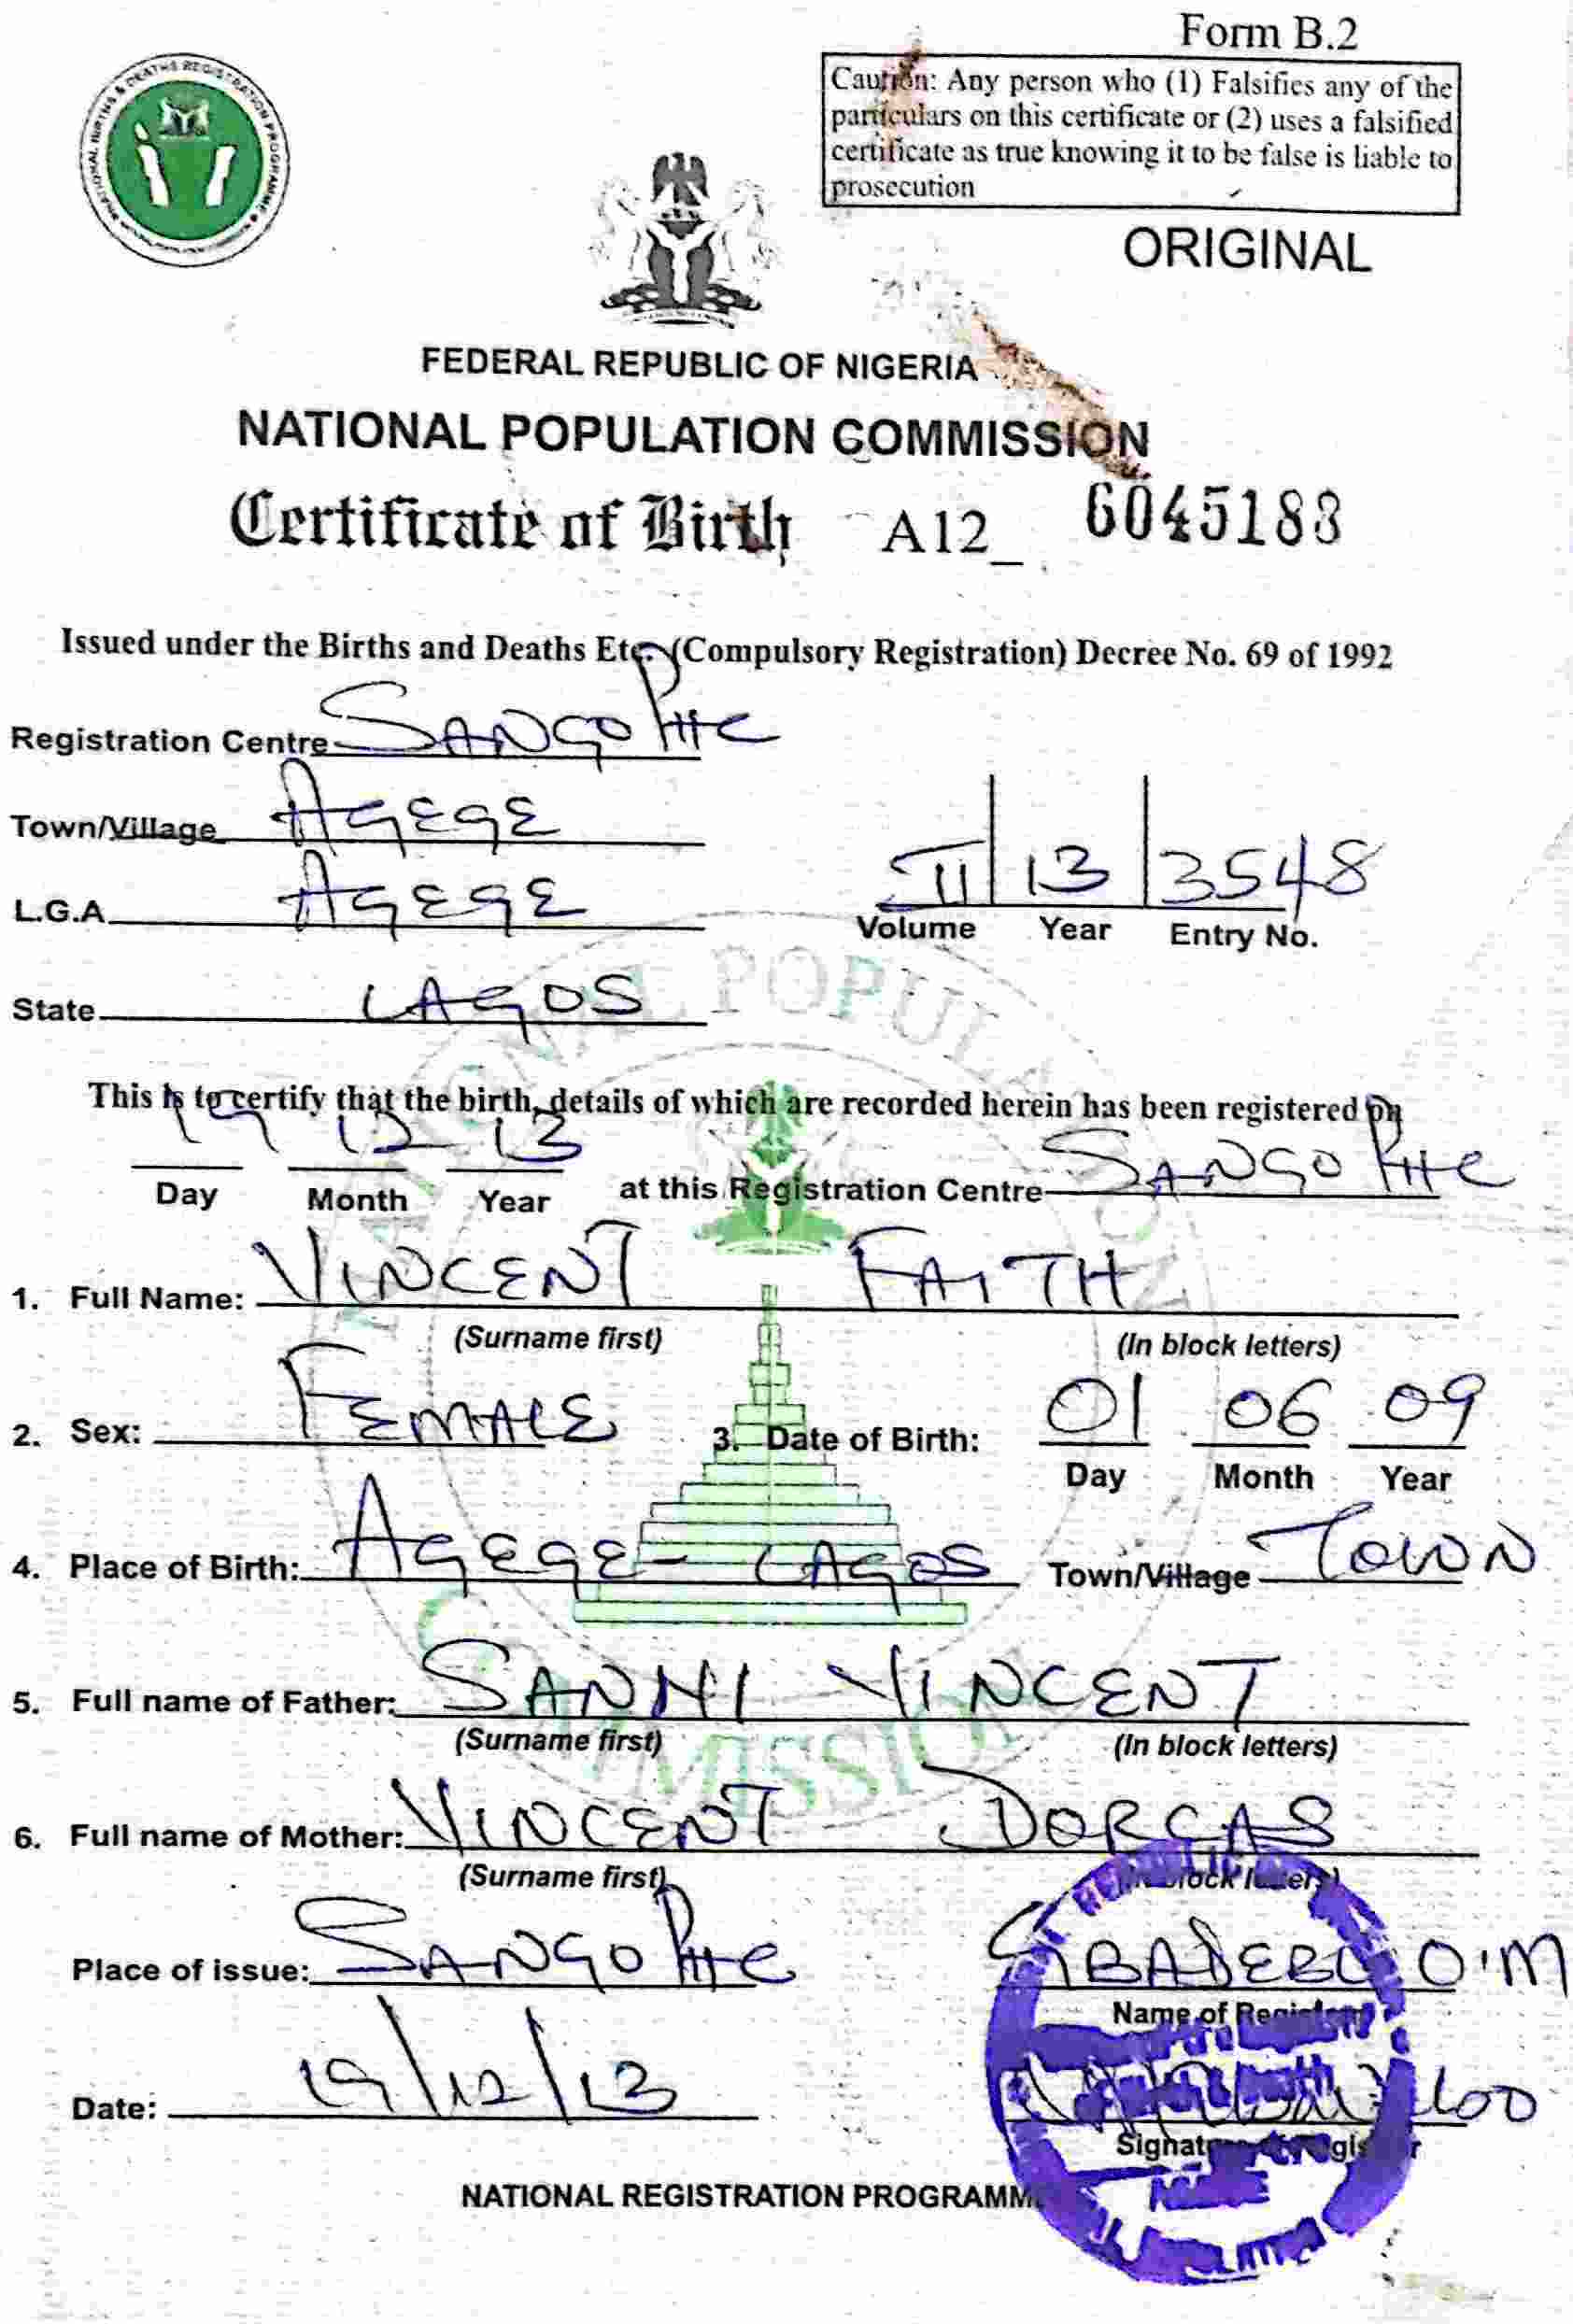 Form B.2
Caution: Any person who (1) Falsifies any of the
particulars on this certificate or (2) uses a falsified
certificate as true knowing it to be false is liable to
prosecution
ORIGINAL
FEDERAL REPUBLIC OF NIGERIA
NATIONAL POPULATION COMMISSION
Certificate of Birth A12_ 6045183
Issued under the Births and Deaths Etc. (Compulsory Registration) Decree No. 69 of 1992
Registration Centre SANGO PHC
Town/Village AGEGE
L.G.A. AGEGE
II 13 3548
Volume Year Entry No.
State LAGOS
This is to certify that the birth, details of which are recorded herein has been registered on
19 12 13
Day Month Year at this Registration Centre SANGO PHC
1. Full Name: VINCENT FAITH
(Surname first) (In block letters)
2. Sex: FEMALE 3. Date of Birth: 01 06 09
Day Month Year
4. Place of Birth: AGEGE - LAGOS Town/Village TOWN
5. Full name of Father: SANNI VINCENT
(Surname first) (In block letters)
6. Full name of Mother: VINCENT DORCAS
(Surname first) (In block letters)
Place of issue: SANGO PHC O.M
Name of Registrar
Date: 19/12/13
Signature of Registrar
NATIONAL REGISTRATION PROGRAMME
NATIONAL POPULATION COMMISSION